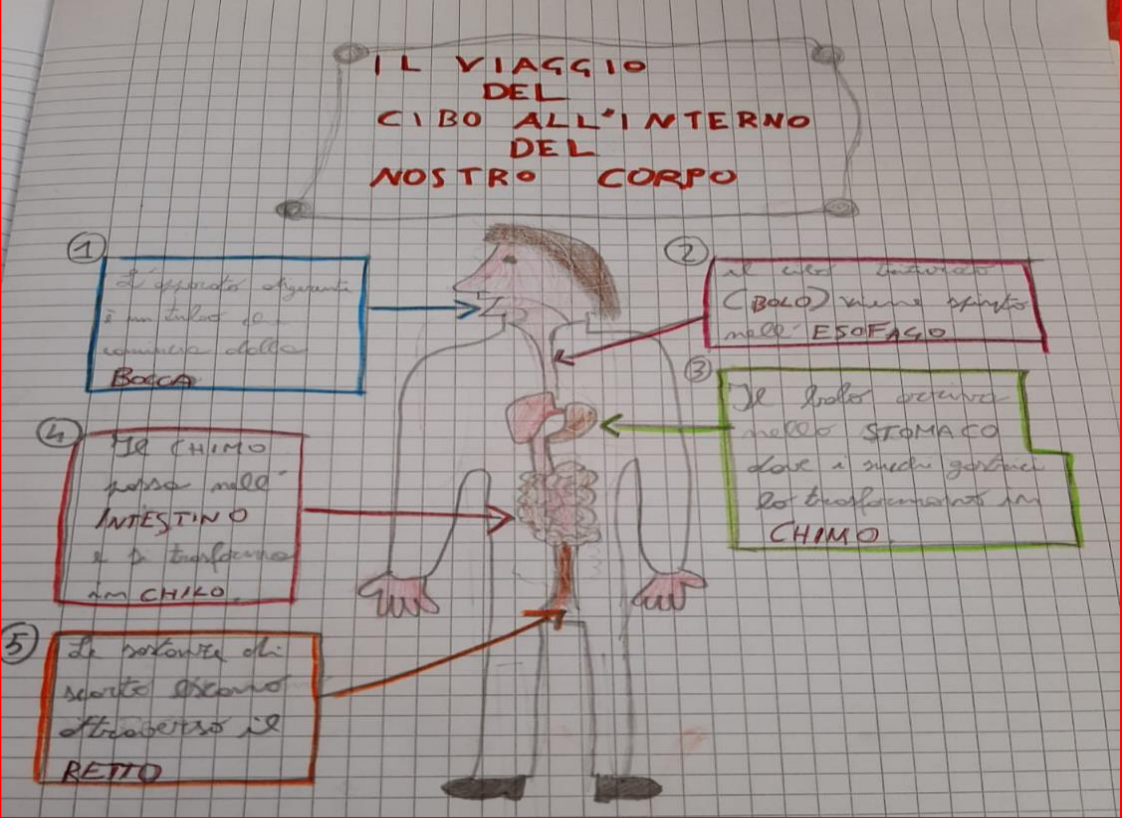 IL VIAGGIO
DEL
CIBO ALL'INTERNO
DEL
NOSTRO CORPO
1
L'apparato digerente
è un tubo che
comincia dalla
BOCCA
2
il cibo triturato
(BOLO) viene spinto
nell'ESOFAGO
3
Il bolo arriva
nello STOMACO
dove i succhi gastrici
lo trasformano in
CHIMO.
4
Il CHIMO
passa nell'
INTESTINO
e si trasforma
in CHILO.
5
Le sostanze di
scarto escono
attraverso il
RETTO